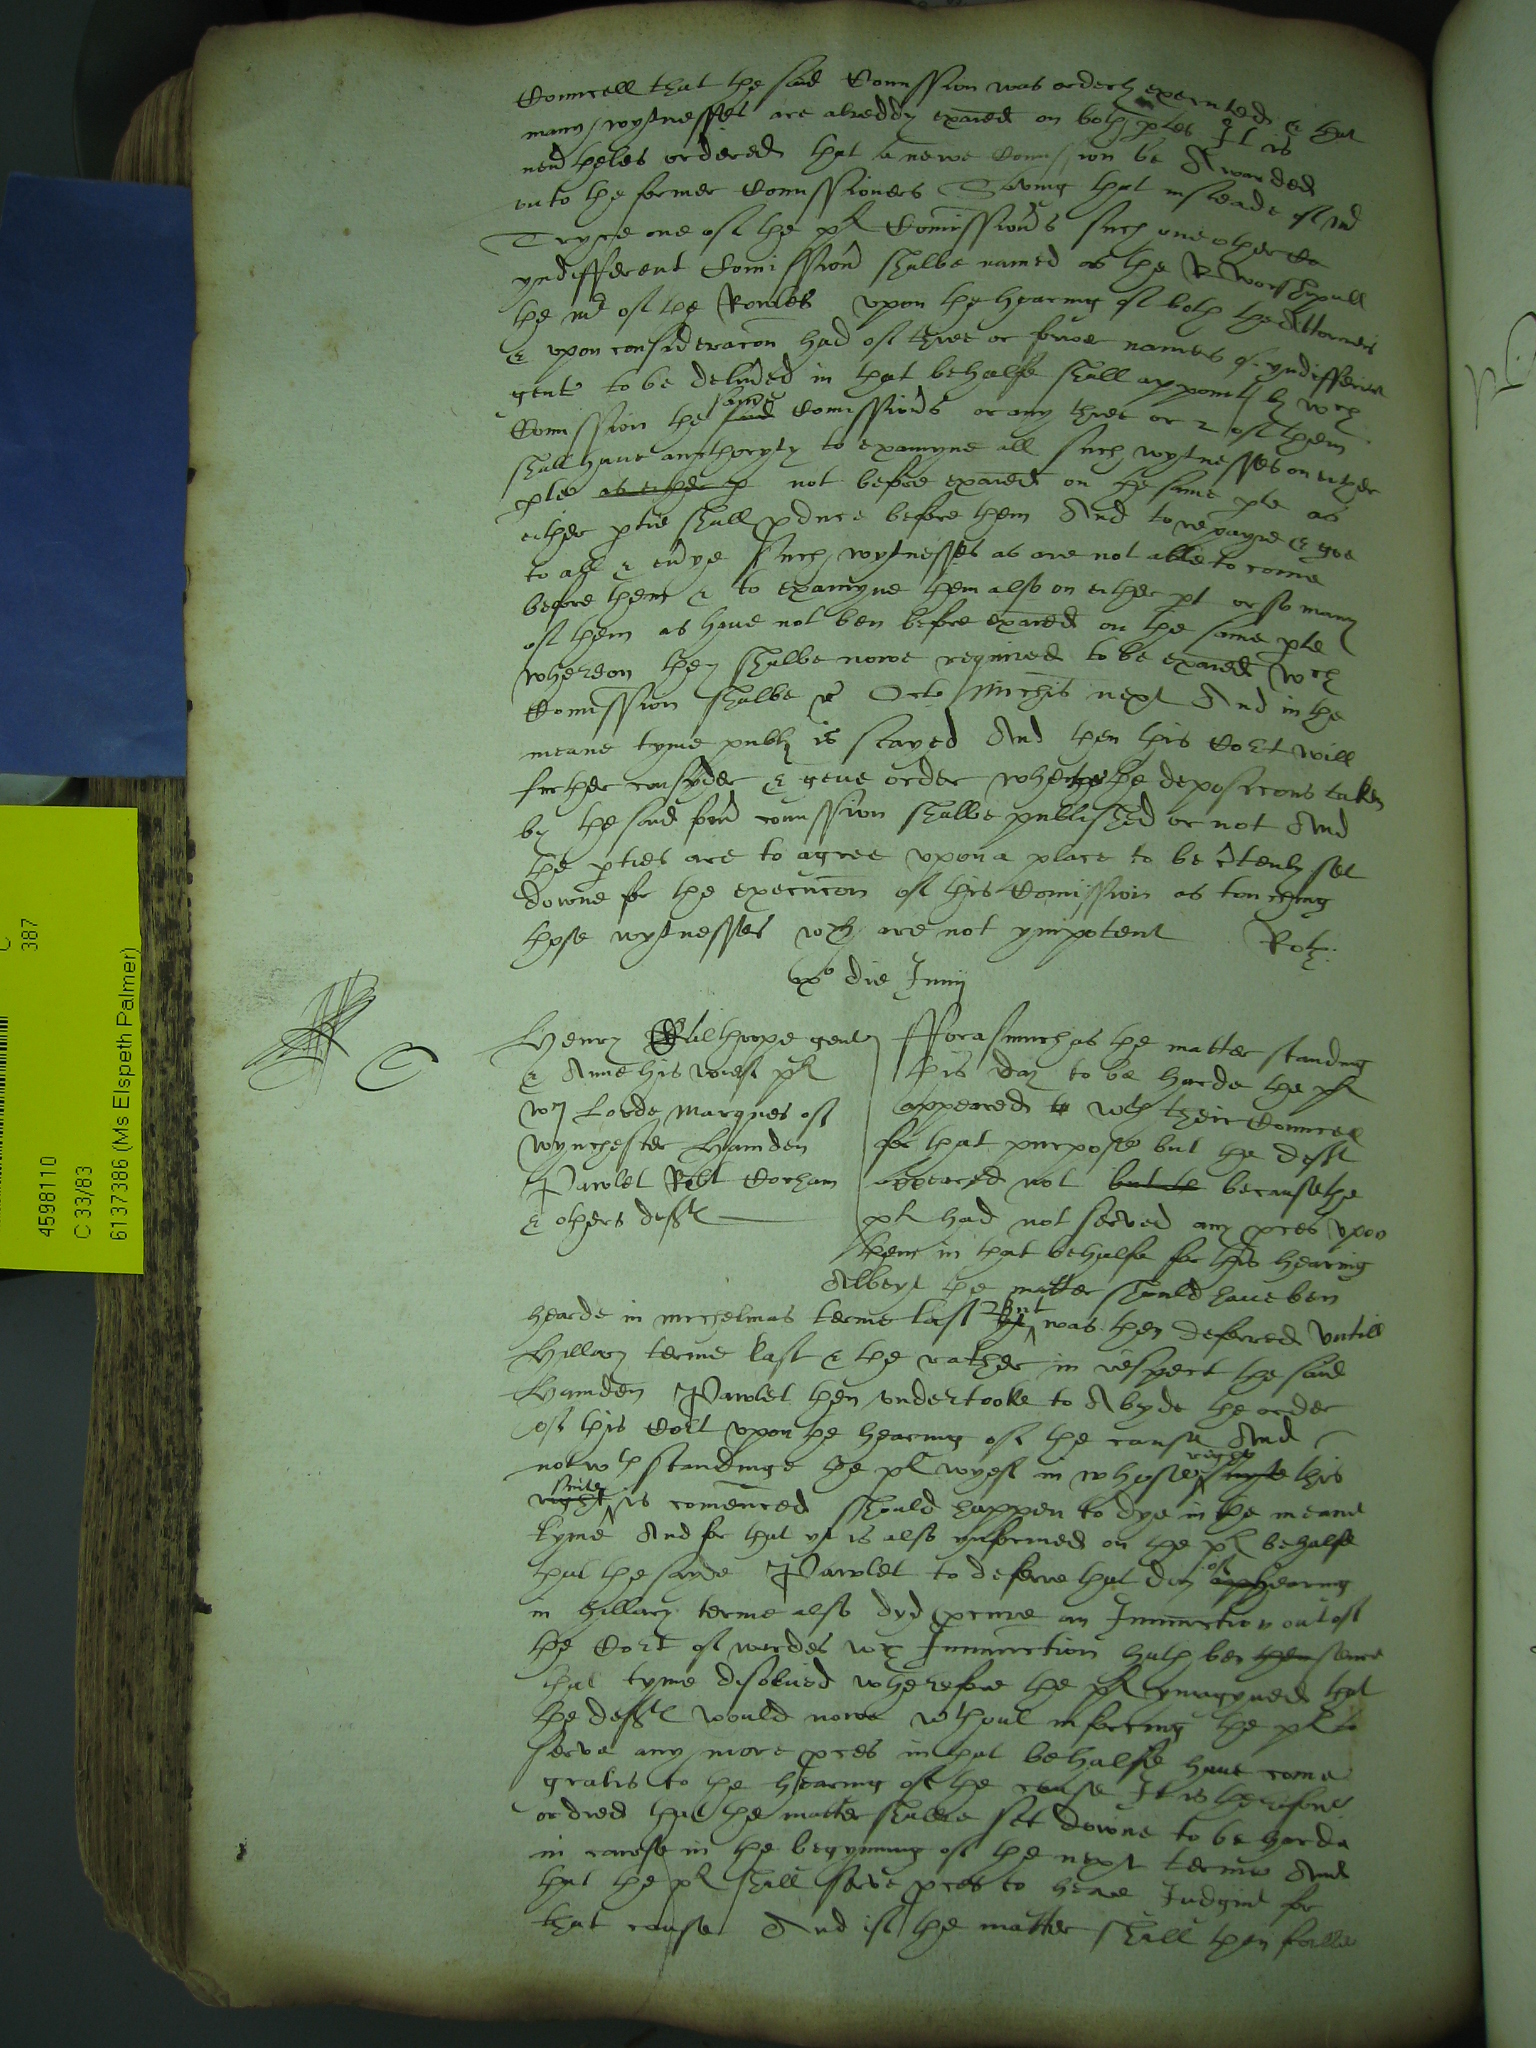 Councell that the said Comission was orderly executed & that
many wytnesses are alreddy exaied on both ptes It is
nevtheles ordered that a newe Comission be Awarded
unto the former Comissioners Saving that insteade of
Tryce one of the pl Comissiors such one other
yndifferent Comissior shalbe named as the R worshipull
the mr of the Rowles upon the hearing of both the Attorneis
& upon consideracon had of three or fowre names of yndifferent
gent to be delived in that behalfe shall appoint by wch
Comission the said same Comissiors or any three or 2 of them
shall have aucthoryty to examyne all such wytnesses on either
ptie as either p not before exaied on the same pte as
either ptie shall pduce before them And to repayre & goe
to all & evrye such wytnesses as are not able to come
before them & to examyne them also on either pt or so many
of them as have not ben before exaied on the same pte
whereon they shalbe nowe required to be exaied wch
Comission shalbe r Octo Michis next And in the
meane tyme publi is stayed And then this Cort will
further consyder & geve order whether the deposicons taken
by the said form comission shalbe published or not And
the pties are to agree upon a place to be ctenly set
downe for the execucon of this Comission as touching
those wytnesses wch are not ympotent Roh
xo die Junij
Henry gent
& Anne his wief pl
Wm Lorde Marques of
Wynchester Hamden
Pawlet Robt Corham
& others defts
fforasmuch as the matter standing
this day to be harde the pl
appeared to wth their Councell
for that purpose but the deft
appeared not but te because the
pl had not served any pces upon
them in that behalfe for this hearing
Albeyt the matter should have ben
hearde in Michelmas terme last but yt was then deferred untill
Hillary terme last & the rather in respect the said
Hamden Pawlet then undertooke to Abyde the order
of this Cort upon the hearing of the cause And
notwthstandinge the pl wyef in whose right suyte this
right suite is comenced should happen to dye in the meane
tyme And for that yt is also ynformed on the pl behalfe
that the sayde Pawlet to deferre that day of hearing
in hillary terme also dyd pcure an Iniunction out of
the Cort of wardes wch Iniunction hath ben then since
that tyme disolved wherefore the pl ymagyned that
the defts would nowe wthout inforcing the pl to
serve any more pces in that behalfe have come
gratis to the hearing of the cause It is therefore
ordred that the matter shalbe set downe to be harde
in course in the begynning of the next terme And
that the pl shall serve pces to heare Iudgmt for
that cause And if the matter shall then faille
387
4598110
C 33/83
6137386 (Ms Elspeth Palmer)